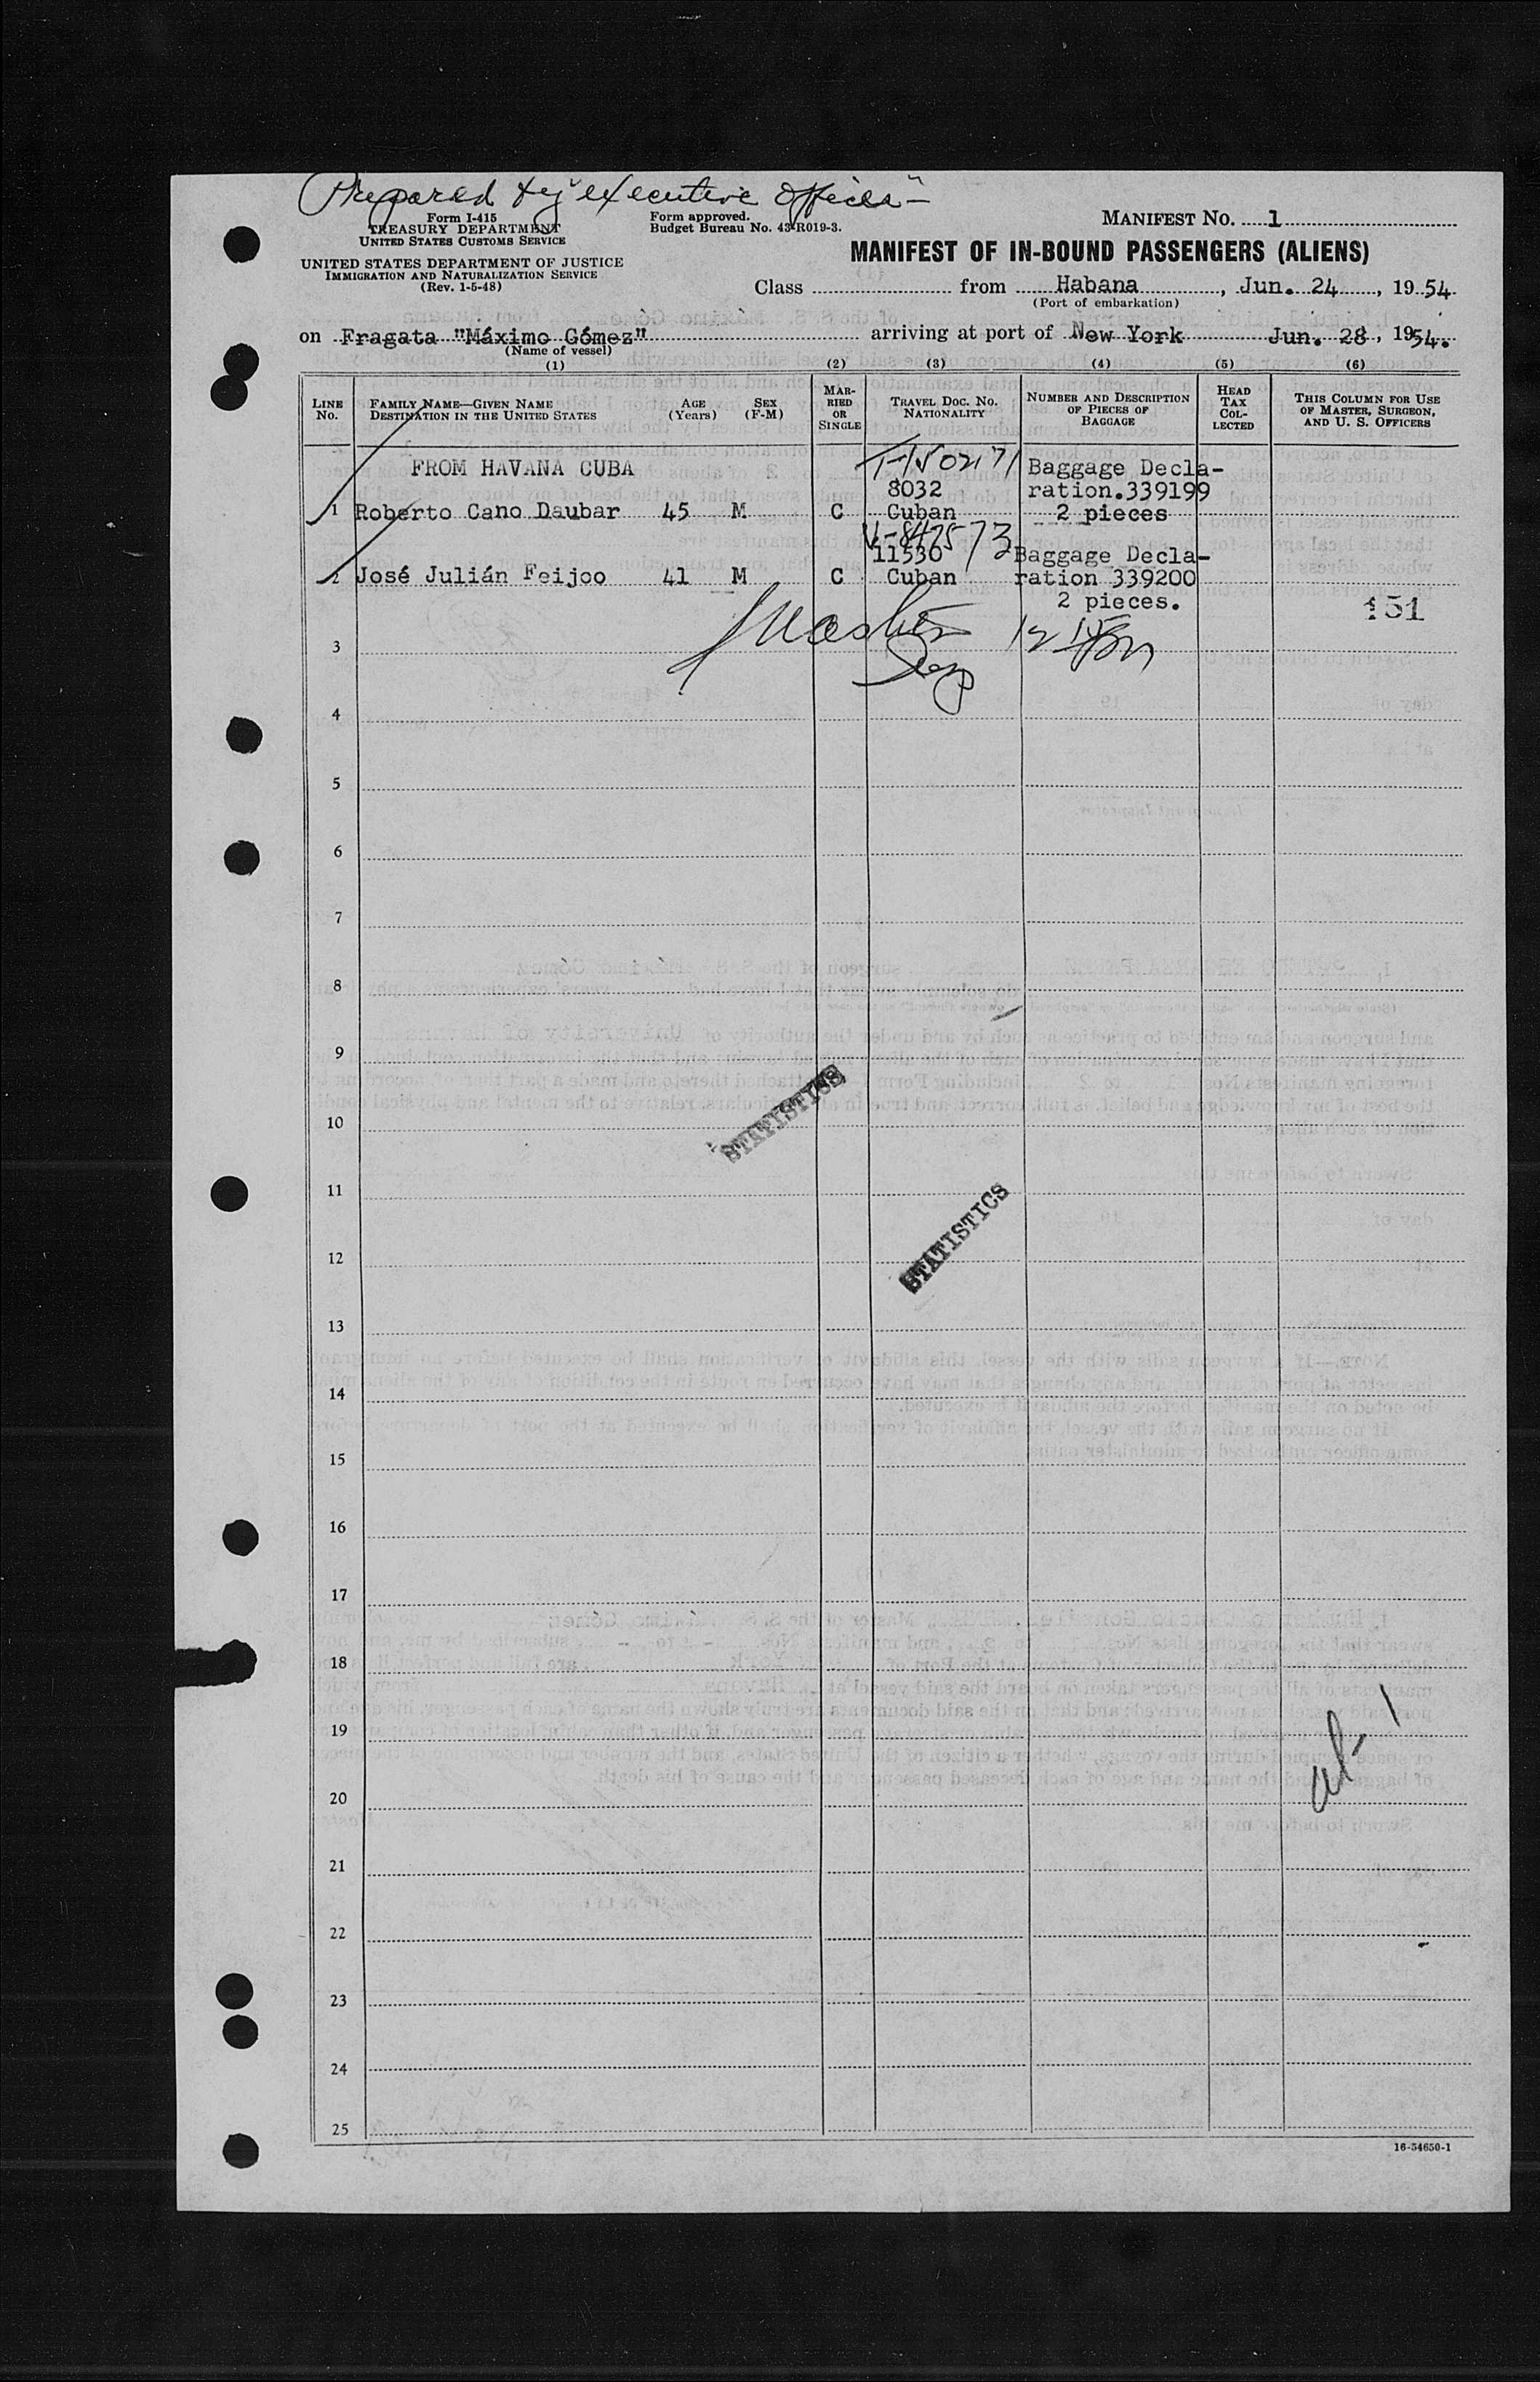 Prepared by "executive officer"
Form I-415
TREASURY DEPARTMENT
UNITED STATES CUSTOMS SERVICE
Form approved.
Budget Bureau No. 43-R019-3.
MANIFEST NO. 1
UNITED STATES DEPARTMENT OF JUSTICE
IMMIGRATION AND NATURALIZATION SERVICE
(Rev. 1-5-48)
MANIFEST OF IN-BOUND PASSENGERS (ALIENS)
Class from Habana, Jun. 24, 1954
(Port of embarkation)
on Fragata "Máximo Gómez" arriving at port of New York Jun. 28, 1954.
(Name of vessel)
(1) (2) (3) (4) (5) (6)
LINE NO.
FAMILY NAME—GIVEN NAME
DESTINATION IN THE UNITED STATES
AGE (Years)
SEX (F-M)
MARRIED OR SINGLE
TRAVEL DOC. NO.
NATIONALITY
NUMBER AND DESCRIPTION
OF PIECES OF
BAGGAGE
HEAD TAX COLLECTED
THIS COLUMN FOR USE
OF MASTER, SURGEON,
AND U. S. OFFICERS
FROM HAVANA CUBA
8032
Baggage Decla-
ration.339199
1 Roberto Cano Daubar 45 M C Cuban 2 pieces
11530
Baggage Decla-
2 José Julián Feijoo 41 M C Cuban ration 339200
2 pieces.
151
3
4
5
6
7
8
9
10
STATISTICS
11
STATISTICS
12
13
14
15
16
17
18
19
20
21
22
23
24
25
16-54650-1